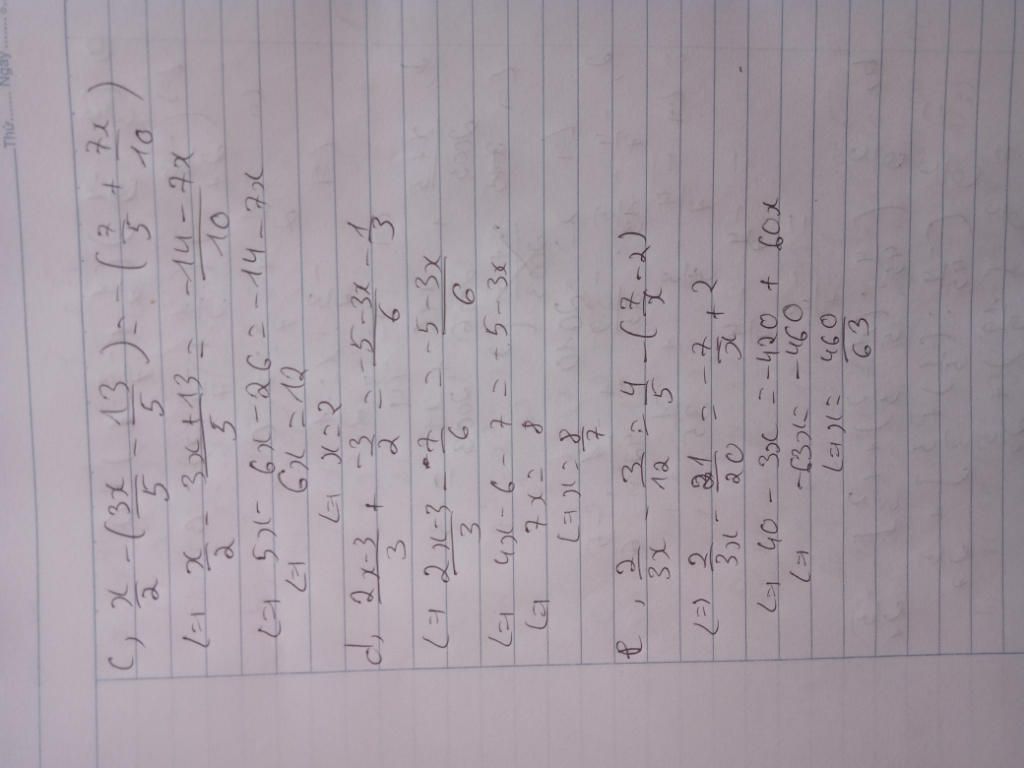 Thứ....... Ngày.......
c, x/2 - (3x/5 - 13/5) = -(7/5 + 7x/10)
(=) x/2 - 3x+13/5 = -14-7x/10
(=) 5x - 6x - 26 = -14 - 7x
(=) 6x = 12
(=) x=2
d, 2x-3/3 + -3/2 = -5-3x/6 - 1/3
(=) 2x-3/3 - 7/6 = -5-3x/6
(=) 4x - 6 - 7 = -5 - 3x
(=) 7x = 8
(=) x = 8/7
e, 2/3x - 3/12 = 4/5 - (7/x - 2)
(=) 2/3x - 21/20 = -7/x + 2
(=) 40 - 3x = -420 + 60x
(=) -63x = -460
(=) x = 460/63